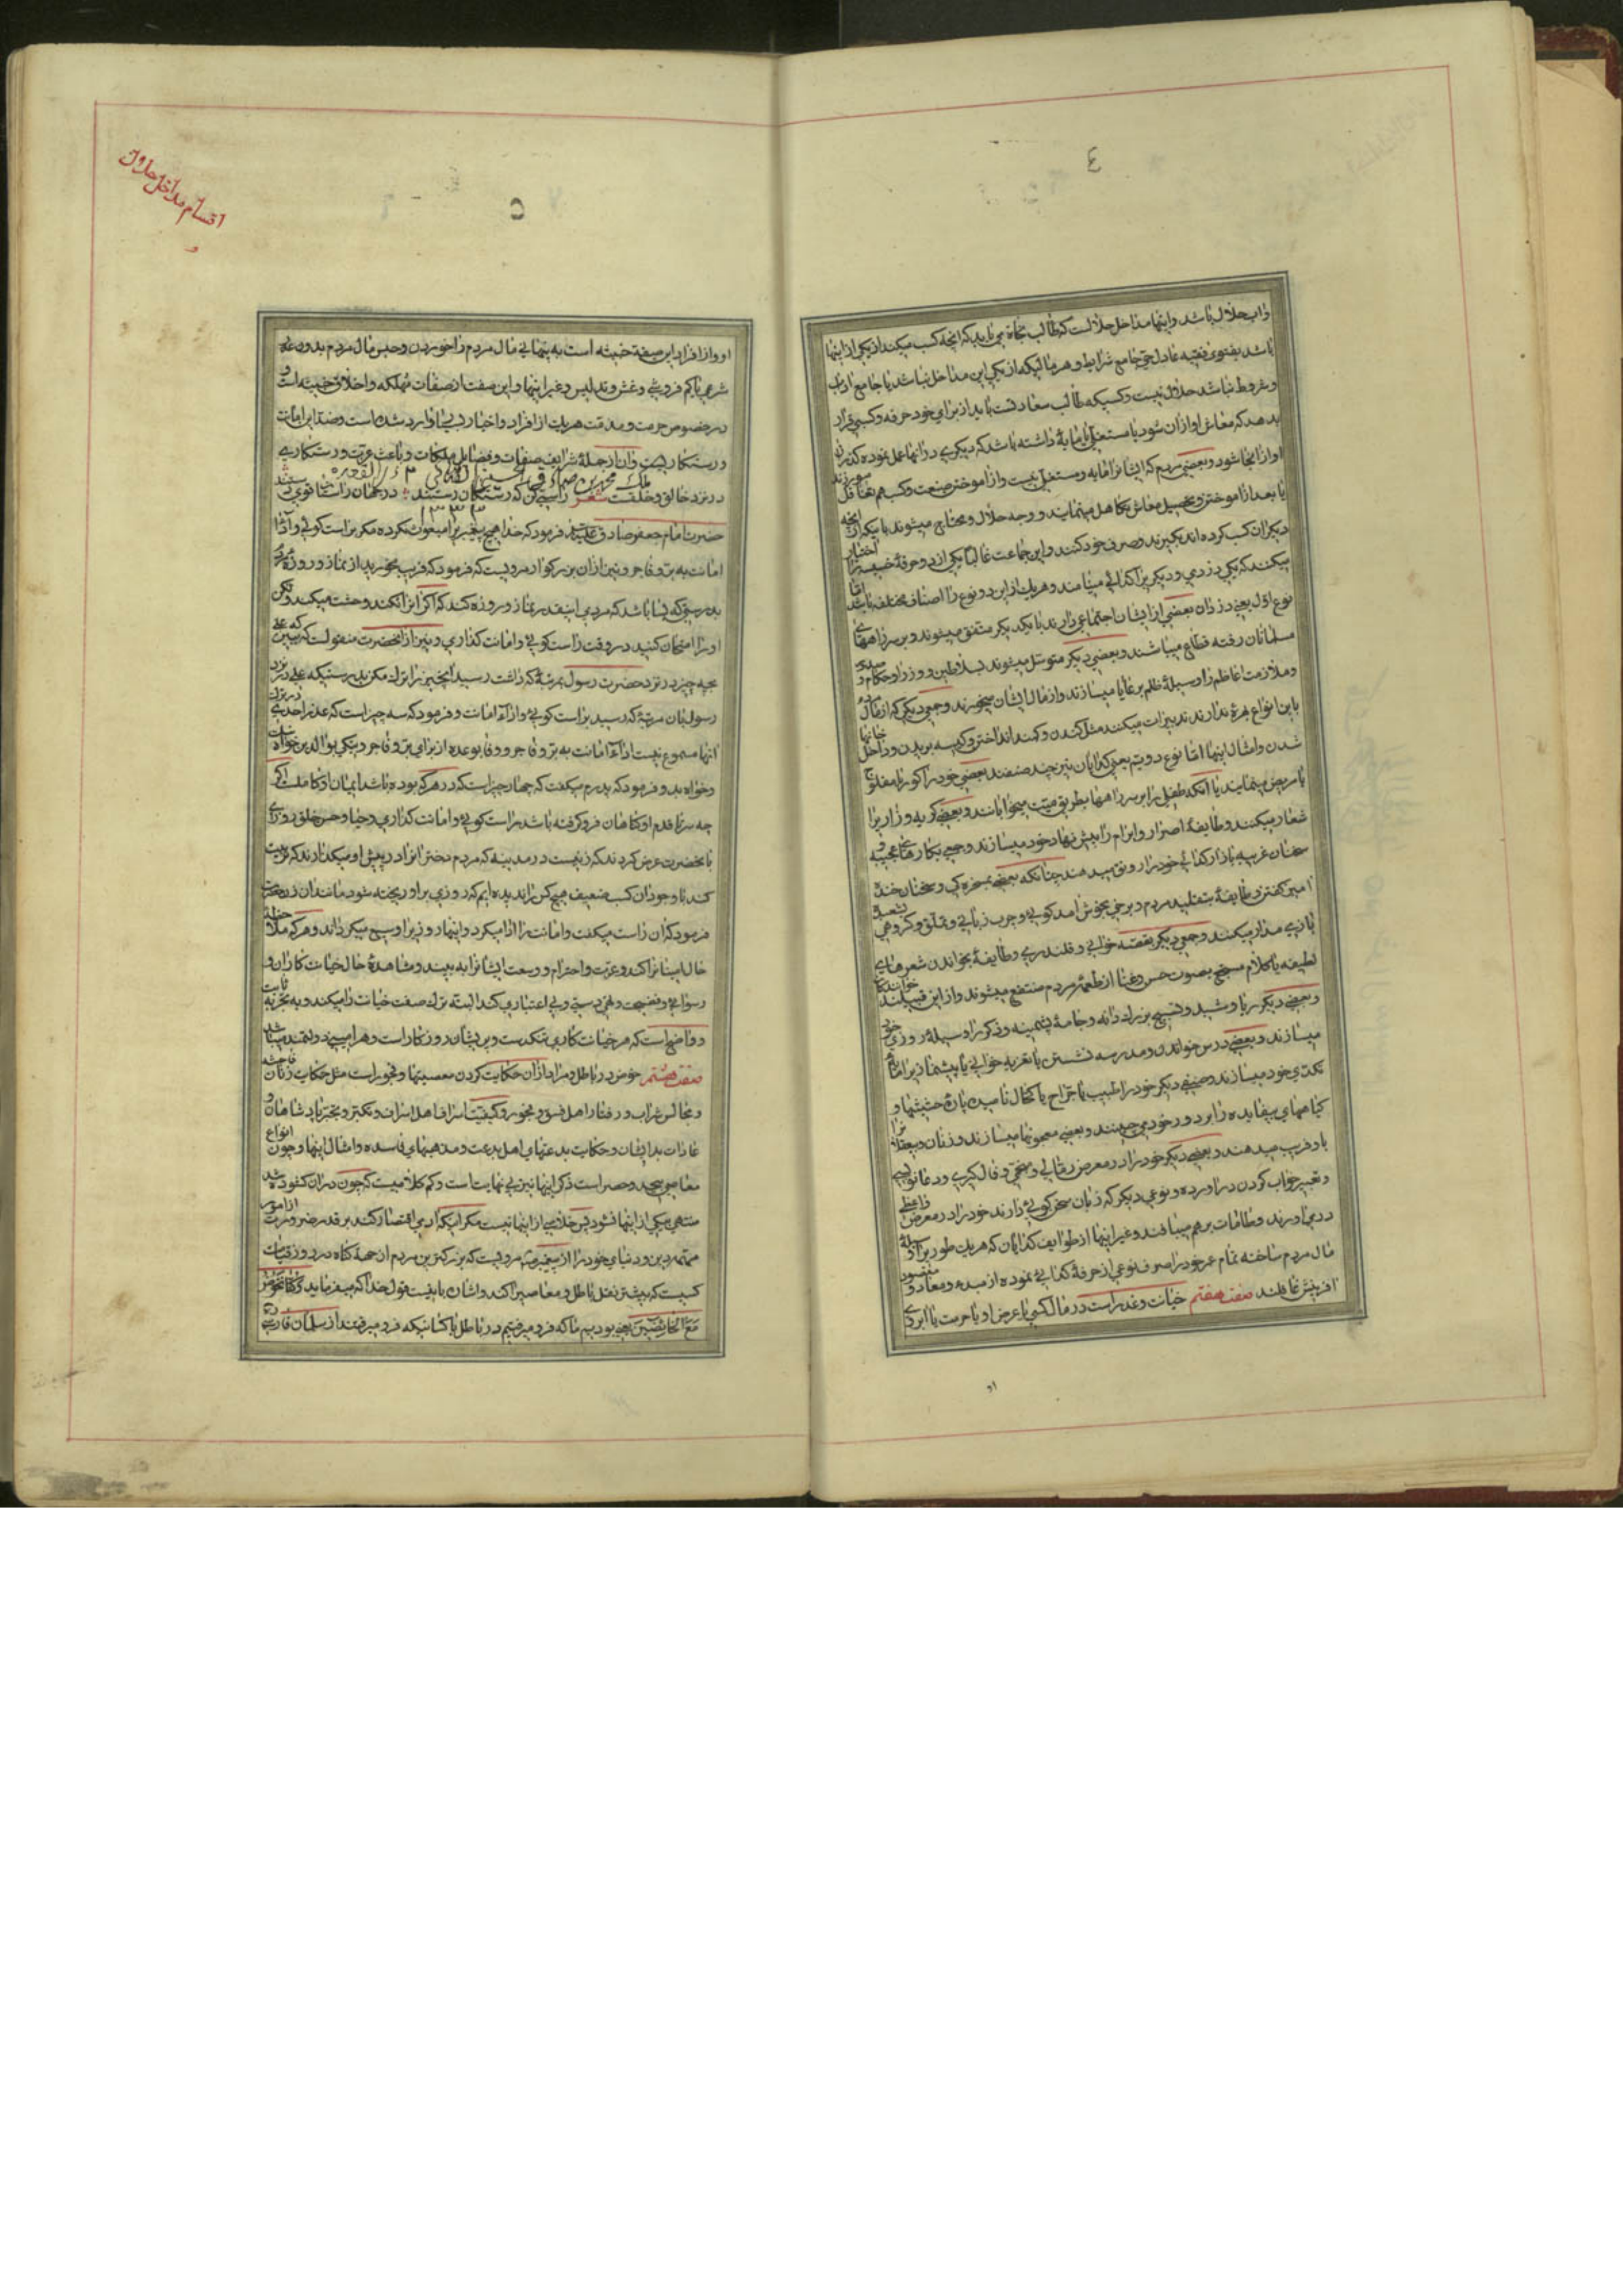 ٤
ذاب حلال باشد و اینها مداخل حلالست که طالب نجاة می باید که انچه کسب میکند از یکی از اینها
باشد بفتوی فقیه عادل حی جامع شرایط و هر مالیکه از یکی این مداخل نباشد یا جامع اداب
و شروط نباشد حلال نیست و کسیکه طالب سعادتست باید از برای خود حرفه و کسبی قرار
بدهد که معاش او از ان شود یا مستغلی یا مایهٔ داشته باشد که دیکری در انها عمل نموده کذران
او از انجا شود و بعضی مردم که ایشانرا مایه و مستغلی نیست و از اموختن صنعت و کسب هم تغافل میورزند
یا بعد از اموختن و تحصیل معاش تکاهل مینمایند و وجه حلال و محتاج میشوند باینکه از انچه
دیکران کسب کرده اند بکیرند و صرف خود کنند و این جماعت غالبا یکی از دو حرفهٔ خسیسه را اختیار
میکنند که یکی دزدی و دیکریرا کدائی مینامند و هریك از این دو نوع را اصناف مختلف باشد اما
نوع اول یعنی دزدان بعضی از ایشان اجتماعی دارند با یکدیکر متفق میشوند و بر سر راههای
مسلمانان رفته قطاع میباشند و بعضی دیکر متوسل میشوند بسلاطین و وزرا و حکام و
و ملازمت اعاظم را وسیلهٔ ظلم بر رعایا میسازند و از مال ایشان میخورند و جمعی دیکر که از مال مردم
باین انواع بهرهٔ ندارند تدبیرات میکنند مثل کندن و کمند انداختن و کیسه بریدن و داخل خانها
شدن و امثال اینها اما نوع دویم یعنی کدایان نیز چند صنفند بعضی خود را کور یا مفلوج
یا مریض مینمایند یا انکه طفلی را بر سر راهها بطریق میت میخوابانند و بعضی کریه و زاریرا
شعار میکنند و طایفهٔ اصرار و ابرام را پیش نهاد خود میسازند و جمعی بکارهای عجیبه و
سخنان غریبه بازار کدائی خود را رونق میدهند چنانکه بعضی بمسخره کی و سخنان خنده
امیز کفتن و طایفهٔ بتقلید مردم و برخی بخوش امد کوئی و چرب زبانی و تملق و کروهی بشعبده
بازی مدار میکنند و جمعی دیکر بقصه خوانی و قلندری و طایفهٔ بخواندن شعرهای
لطیفه یا کلام مسجع بصوت حسن و غنا از طعمهٔ مردم منتفع میشوند و از این قبیلند خوانندکان
و بعضی دیکر ریا و شید و تسبیح بزرك دانه و جامهٔ پشمینه و ذکر را وسیلهٔ روزی خود
میسازند و بعضی درس خواندن و مدرسه نشستن یا تعزیه خوانی یا پیشنمازیرا مایهٔ
تکدی خود میسازند و صنفی دیکر خود را طبیب یا جراح یا کحال نامیده پارهٔ حشیشها و
کیاههای بیفایده را بر دور خود می چینند و بعضی معجونها میسازند و زنان و بیعقلانرا
باو فریب میدهند و بعضی دیکر خود را در معرض رمالی و منجمی و فال کیری و دعانویسی
و تعبیر خواب کردن در اورده و نوعی دیکر که زبان سخن کوئی دارند خود را در معرض واعظی
در می اورند و طامات بر هم میبافند و غیر اینها از طوایف کدایان که هریك طوریرا وسیلهٔ
مال مردم ساخته تمام عمر خود را صرف نوعی از حرفهٔ کدائی نموده از مبدء و معاد و مقصود
افرینش غافلند صفت هفتم خیانت و غدر است در مال کسی یا عرض او یا حرمت یا ابروی
او
٥
اقسام مداخل حلال
او و از افراد این صفة خبیثه است به پنهانی مال مردم را خوردن و حبس مال مردم بدون عذر
شرعی یا کم فروشی و غش و تدلیس و غیر اینها و این صفت از صفات مهلکه و اخلاق خبیثه است و
در خصوص حرمت و مذمت هریك از افراد و اخبار بی‌نها وارد شده است و ضد این امانت
و رستکاریست و ان از جملهٔ شرایف صفات و فضایل ملکات و باعث عزت و رستکاری
در نزد خالق و خلقست شعر راستی کن که رستکان رستند در جهان راستان قوی دستند
حضرت امام جعفر صادق علیه السلام فرمود که خدا هیچ پیغمبریرا مبعوث نکرده مکر براست کوئی و ادای
امانت به بر و فاجر و نیز از ان بزرکوار مرویست که فرمود که فریب نخورید از نماز و روزهٔ مردم
بدرستیکه بسا باشد که مردی اینقدر نماز و روزه کند که اکر انرا نکند وحشت میکند و لکن
او را امتحان کنید در وقت راست کوئی و امانت کذاری و نیز از انحضرت منقولست که ببین که علی
بچه چیز در نزد حضرت رسول بمرتبهٔ که داشت رسید انچیز را ترك مکن بدرستیکه علی در نزد
رسول بان مرتبهٔ که رسید براست کوئی و ادآء امانت و فرمود که سه چیز است که عذر احدی در ترك
انها مسموع نیست ادآء امانت به بر و فاجر و وفا بوعده از برای بر و فاجر و نیکی بوالدین خواه نیك
و خواه بد و فرمود که پدرم میکفت که چهار چیز است که در هرکه بوده باشد ایمان او کاملست اکر
چه سر تا قدم او کناهان فرو کرفته باشد راست کوئی و امانت کذاری و حیا و حسن خلق روزی
بانحضرت عرض کردند که زنیست در مدینه که مردم دختران را در پیش او میکذارند که تربیت
کند با وجود ان کسب ضعیف هیچ کس را ندیده ایم که روزی بر او ریخته شود مانند ان زن حضرت
فرمود که ان راست میکفت و امانت را ادا میکرد و اینها روزیرا وسیع میکرداند و هرکه ملاحظهٔ
حال امینانرا کند و عزت و احترام و وسعت ایشانرا به بیند و مشاهدهٔ حال خیانت کاران و
رسوائی و فضیحت و تهی دستی و بی اعتباری کند البته ترك صفت خیانت را میکند و به تجربه ثابت
و واضح است که هر خیانت کاری تنکدست و پریشان روزکار است و هر امینی دولتمند میباشد
صفت هشتم خوض در باطل و مراد از ان حکایت کردن معصیتها و فجور است مثل حکایت زنان فاحشه
و مجالس شراب و رفتار اهل فسق و فجور و کیفیت اسراف اهل اسراف و تکبر و تجبر پادشاهان و
عادات بد ایشان و حکایت بدعتهای اهل بدعت و مذهبهای فاسده و امثال اینها و چون انواع
معاصی بیحد و حصر است ذکر اینها نیز بی نهایت است و کم کلامیست که چون در ان کشوده شد
منتهی بیکی از اینها نشود پس خلاصی از اینها نیست مکر اینکه ادمی اقتصار کند بر قدر ضرورت از امور
مهمه دین و دنیای خود را از پیغمبر صلعم مرویست که بزرکترین مردم از جهة کناه در روز قیامت
کسیست که بیشتر نقل باطل و معاصیرا کند و اشاره باینست قول خدا که میفرماید و کنا نخوض
مع الخائضین یعنی بودیم ما که فرو میرفتیم در باطل با کسانیکه فرو میرفتند از سلمان فارسی